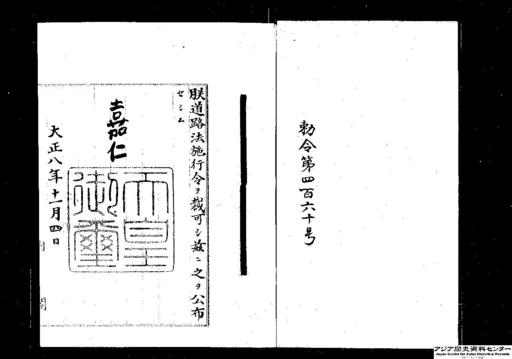 勅令第四百六十号
朕道路法施行令ヲ裁可シ茲ニ之ヲ公布
セシム
嘉仁
天皇
御璽
大正八年十一月四日
内閣
アジア歴史資料センター
Japan Center for Asian Historical Records